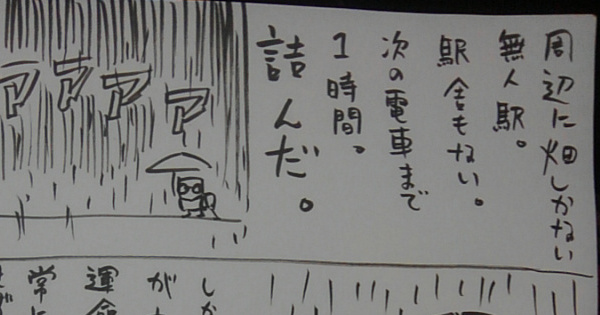 周辺に畑しかない
無人駅。
駅舎もない。
次の電車まで
1時間。
詰んだ。
アアアア
しか
が
運命
常に